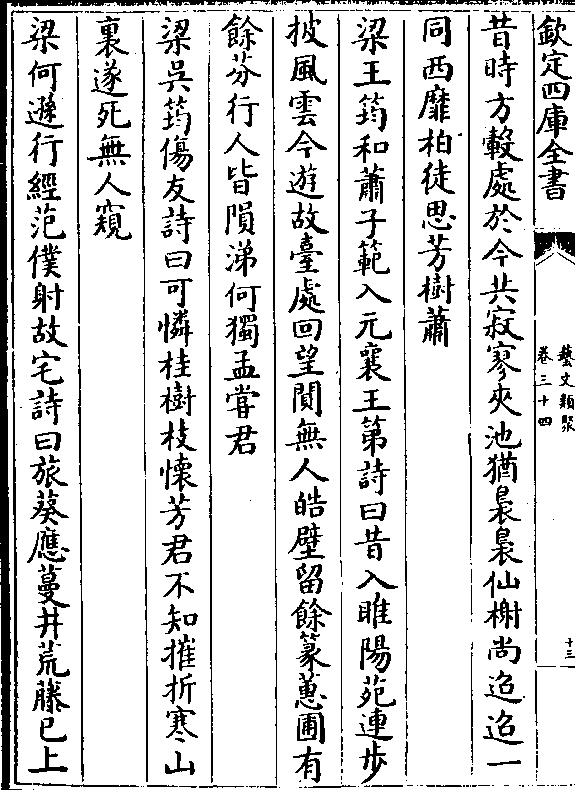 欽定四庫全書
藝文類聚
卷三十四
十三
昔時方轂處於今共寂寥夾池猶裊裊仙榭尚迢迢一
同西靡柏徒思芳樹蕭
梁王筠和蕭子範入元襄王第詩曰昔入睢陽苑連步
披風雲今遊故臺處回望閴無人皓壁留餘篆蕙圃有
餘芬行人皆隕涕何獨孟嘗君
梁吳筠傷友詩曰可憐桂樹枝懷芳君不知摧折寒山
裏遂死無人窺
梁何遜行經范僕射故宅詩曰旅葵應蔓井荒藤已上